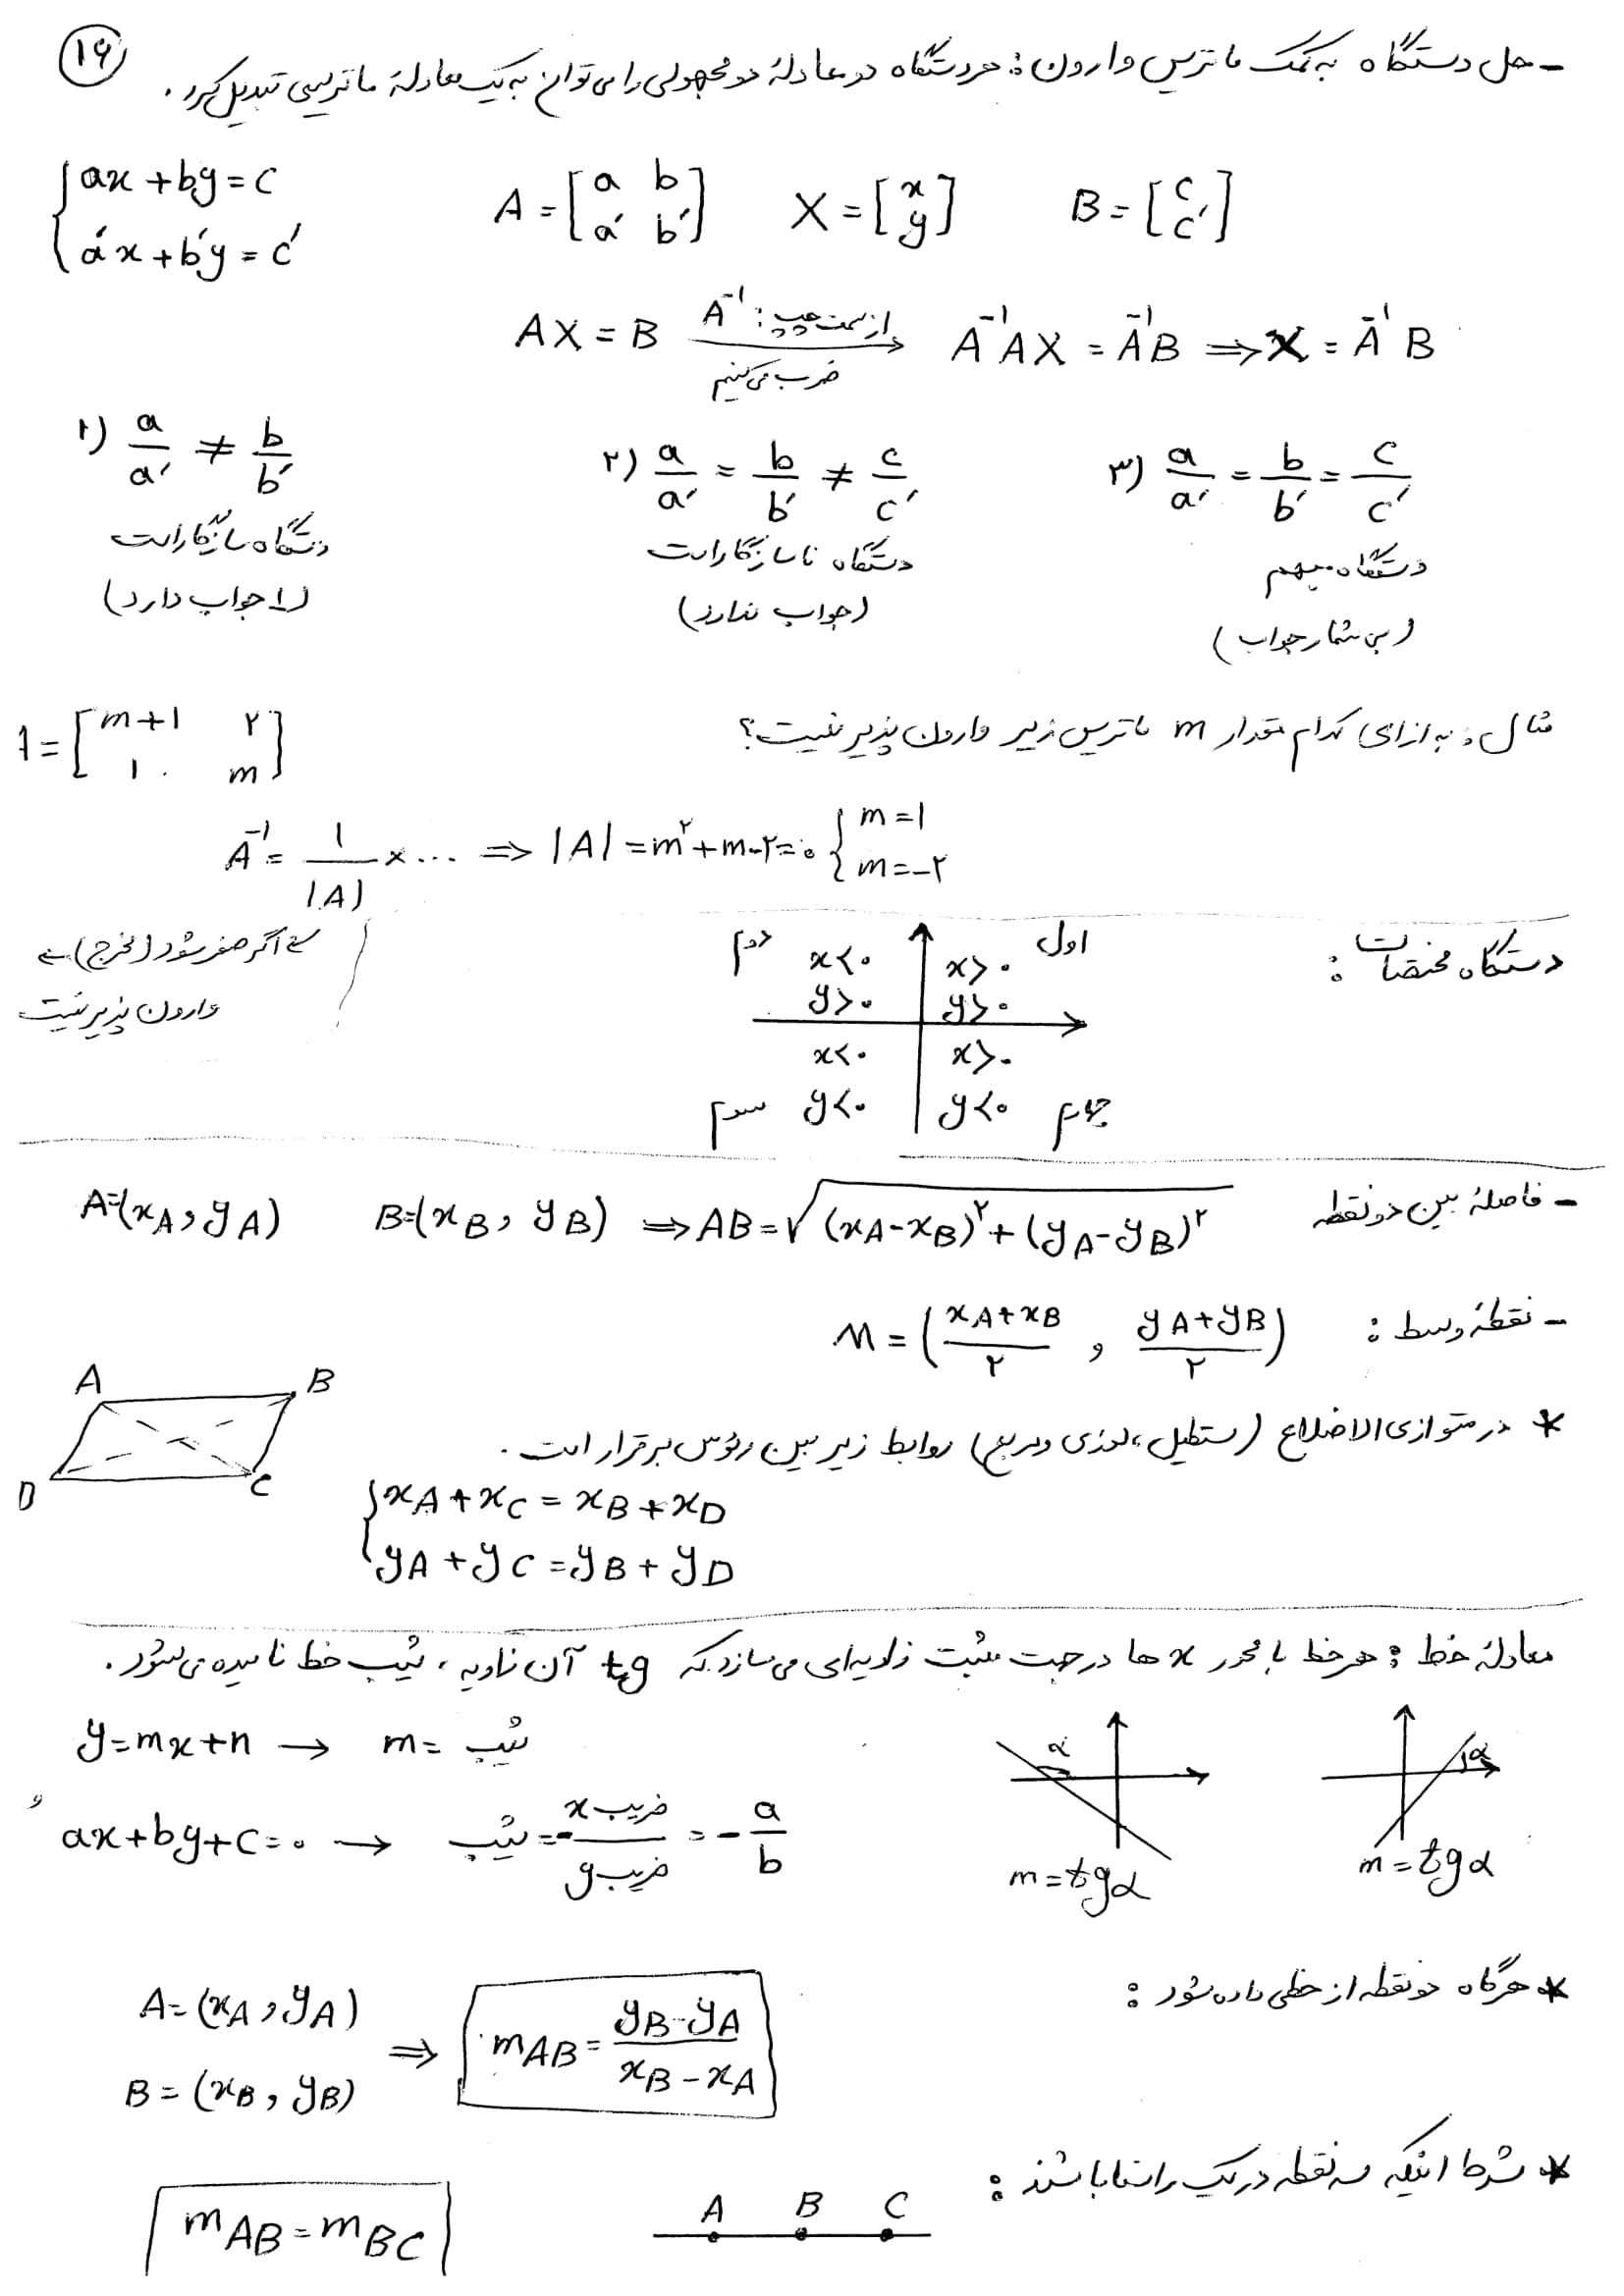 ۱۶
- حل دستگاه به کمک ماتریس وارون: هر دستگاه دو معادلهٔ دو مجهولی را می‌توان به یک معادلهٔ ماتریسی تبدیل کرد.
{ax + by = c
a′x + b′y = c′
A = [a b
a′ b′] X = [x
y] B = [c
c′]
AX = B از سمت چپ: A⁻¹ ضرب می‌کنیم → A⁻¹AX = A⁻¹B ⇒ X = A⁻¹B
۱) a/a′ ≠ b/b′ ۲) a/a′ = b/b′ ≠ c/c′ ۳) a/a′ = b/b′ = c/c′
دستگاه سازگار است دستگاه ناسازگار است دستگاه مبهم
(۱ جواب دارد) (جواب ندارد) (بی شمار جواب)
مثال: به ازای کدام مقدار m ماتریس زیر وارون پذیر نیست؟
A = [m+1 ۲
1 m]
A⁻¹ = 1/|A| × ... ⇒ |A| = m² + m - ۲ = ۰ {m = 1
m = -۲
اگر صفر شود (مخرج) ⇐
وارون پذیر نیست
دستگاه مختصات:
دوم x<۰ y>۰ x>۰ y>۰ اول
سوم x<۰ y<۰ x>۰ y<۰ چهارم
- فاصلهٔ بین دو نقطه A=(xA, yA) B=(xB, yB) ⇒ AB = √(xA-xB)² + (yA-yB)²
- نقطهٔ وسط: M = (xA+xB/۲ , yA+yB/۲)
* در متوازی الاضلاع (مستطیل، لوزی و مربع) روابط زیر بین رئوس برقرار است.
A B
D C
{xA + xC = xB + xD
yA + yC = yB + yD
معادلهٔ خط: هر خط با محور x ها در جهت مثبت زاویه‌ای می‌سازد که tg آن زاویه، شیب خط نامیده می‌شود.
y = mx + n → m = شیب
ax + by + c = ۰ → شیب = - ضریب x/ضریب y = - a/b
α α
m = tgα m = tgα
* هرگاه دو نقطه از خطی داده شود:
A = (xA, yA)
B = (xB, yB) ⇒ mAB = yB - yA/xB - xA
* شرط اینکه سه نقطه در یک راستا باشند:
A B C
mAB = mBC